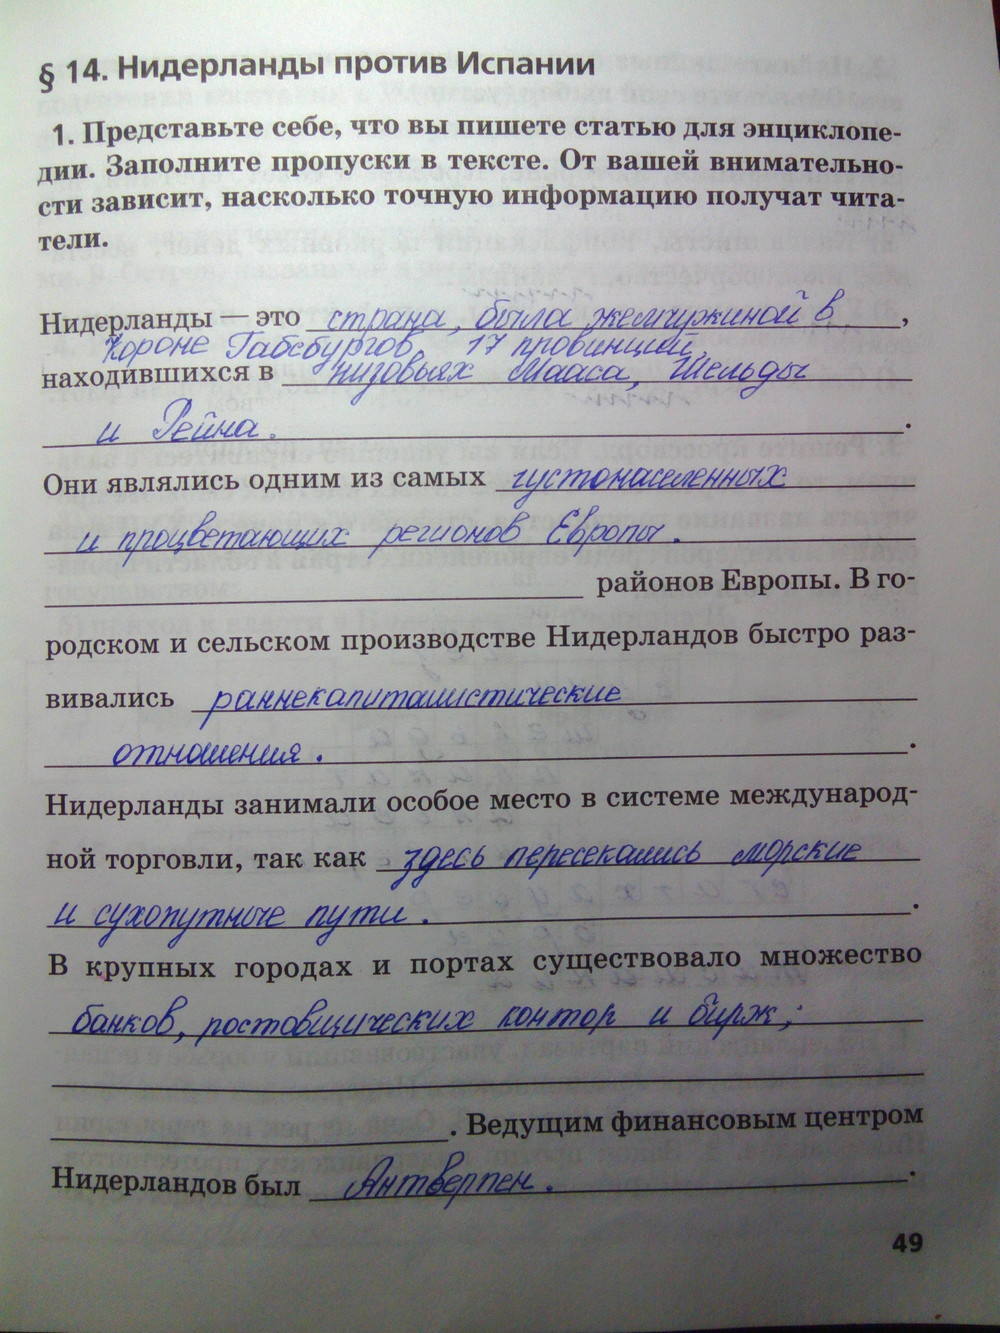 § 14. Нидерланды против Испании
1. Представьте себе, что вы пишете статью для энциклопе-
дии. Заполните пропуски в тексте. От вашей внимательно-
сти зависит, насколько точную информацию получат чита-
тели.
Нидерланды — это страна, была жемчужиной в ,
Короне Габсбургов, 17 провинций,
находившихся в низовьях Мааса, Шельды
и Рейна. .
Они являлись одним из самых густонаселенных
и процветающих регионов Европы.
районов Европы. В го-
родском и сельском производстве Нидерландов быстро раз-
вивались раннекапиталистические
отношения. .
Нидерланды занимали особое место в системе международ-
ной торговли, так как здесь пересекались морские
и сухопутные пути. .
В крупных городах и портах существовало множество
банков, ростовщических контор и бирж;
. Ведущим финансовым центром
Нидерландов был Антверпен. .
49